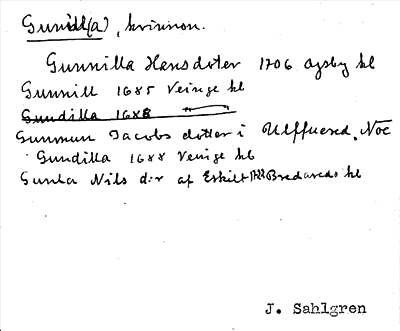 Gunill(a), kvinnon.
Gunnilla Hansdoter 1706 Agsby kb
Gunnill 1685 Veinge kb
Gundilla 1688
Gunnun Jacobs dotter i Ulffuered, Noe
Gundilla 1688 Veinge kb
Gunla Nils d:r af Eskilt Bredareds kb
J. Sahlgren